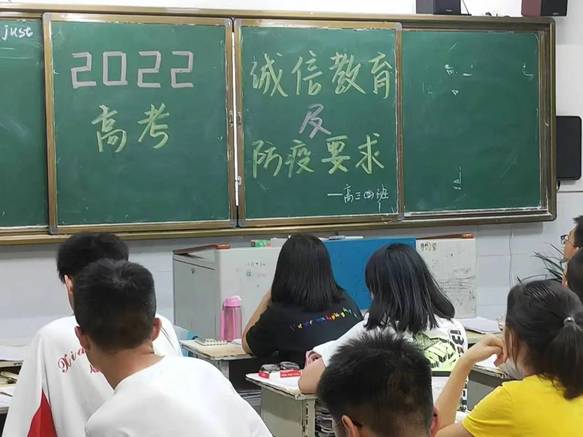 just
2022
高考
诚信教育
及
防疫要求
—高三四班